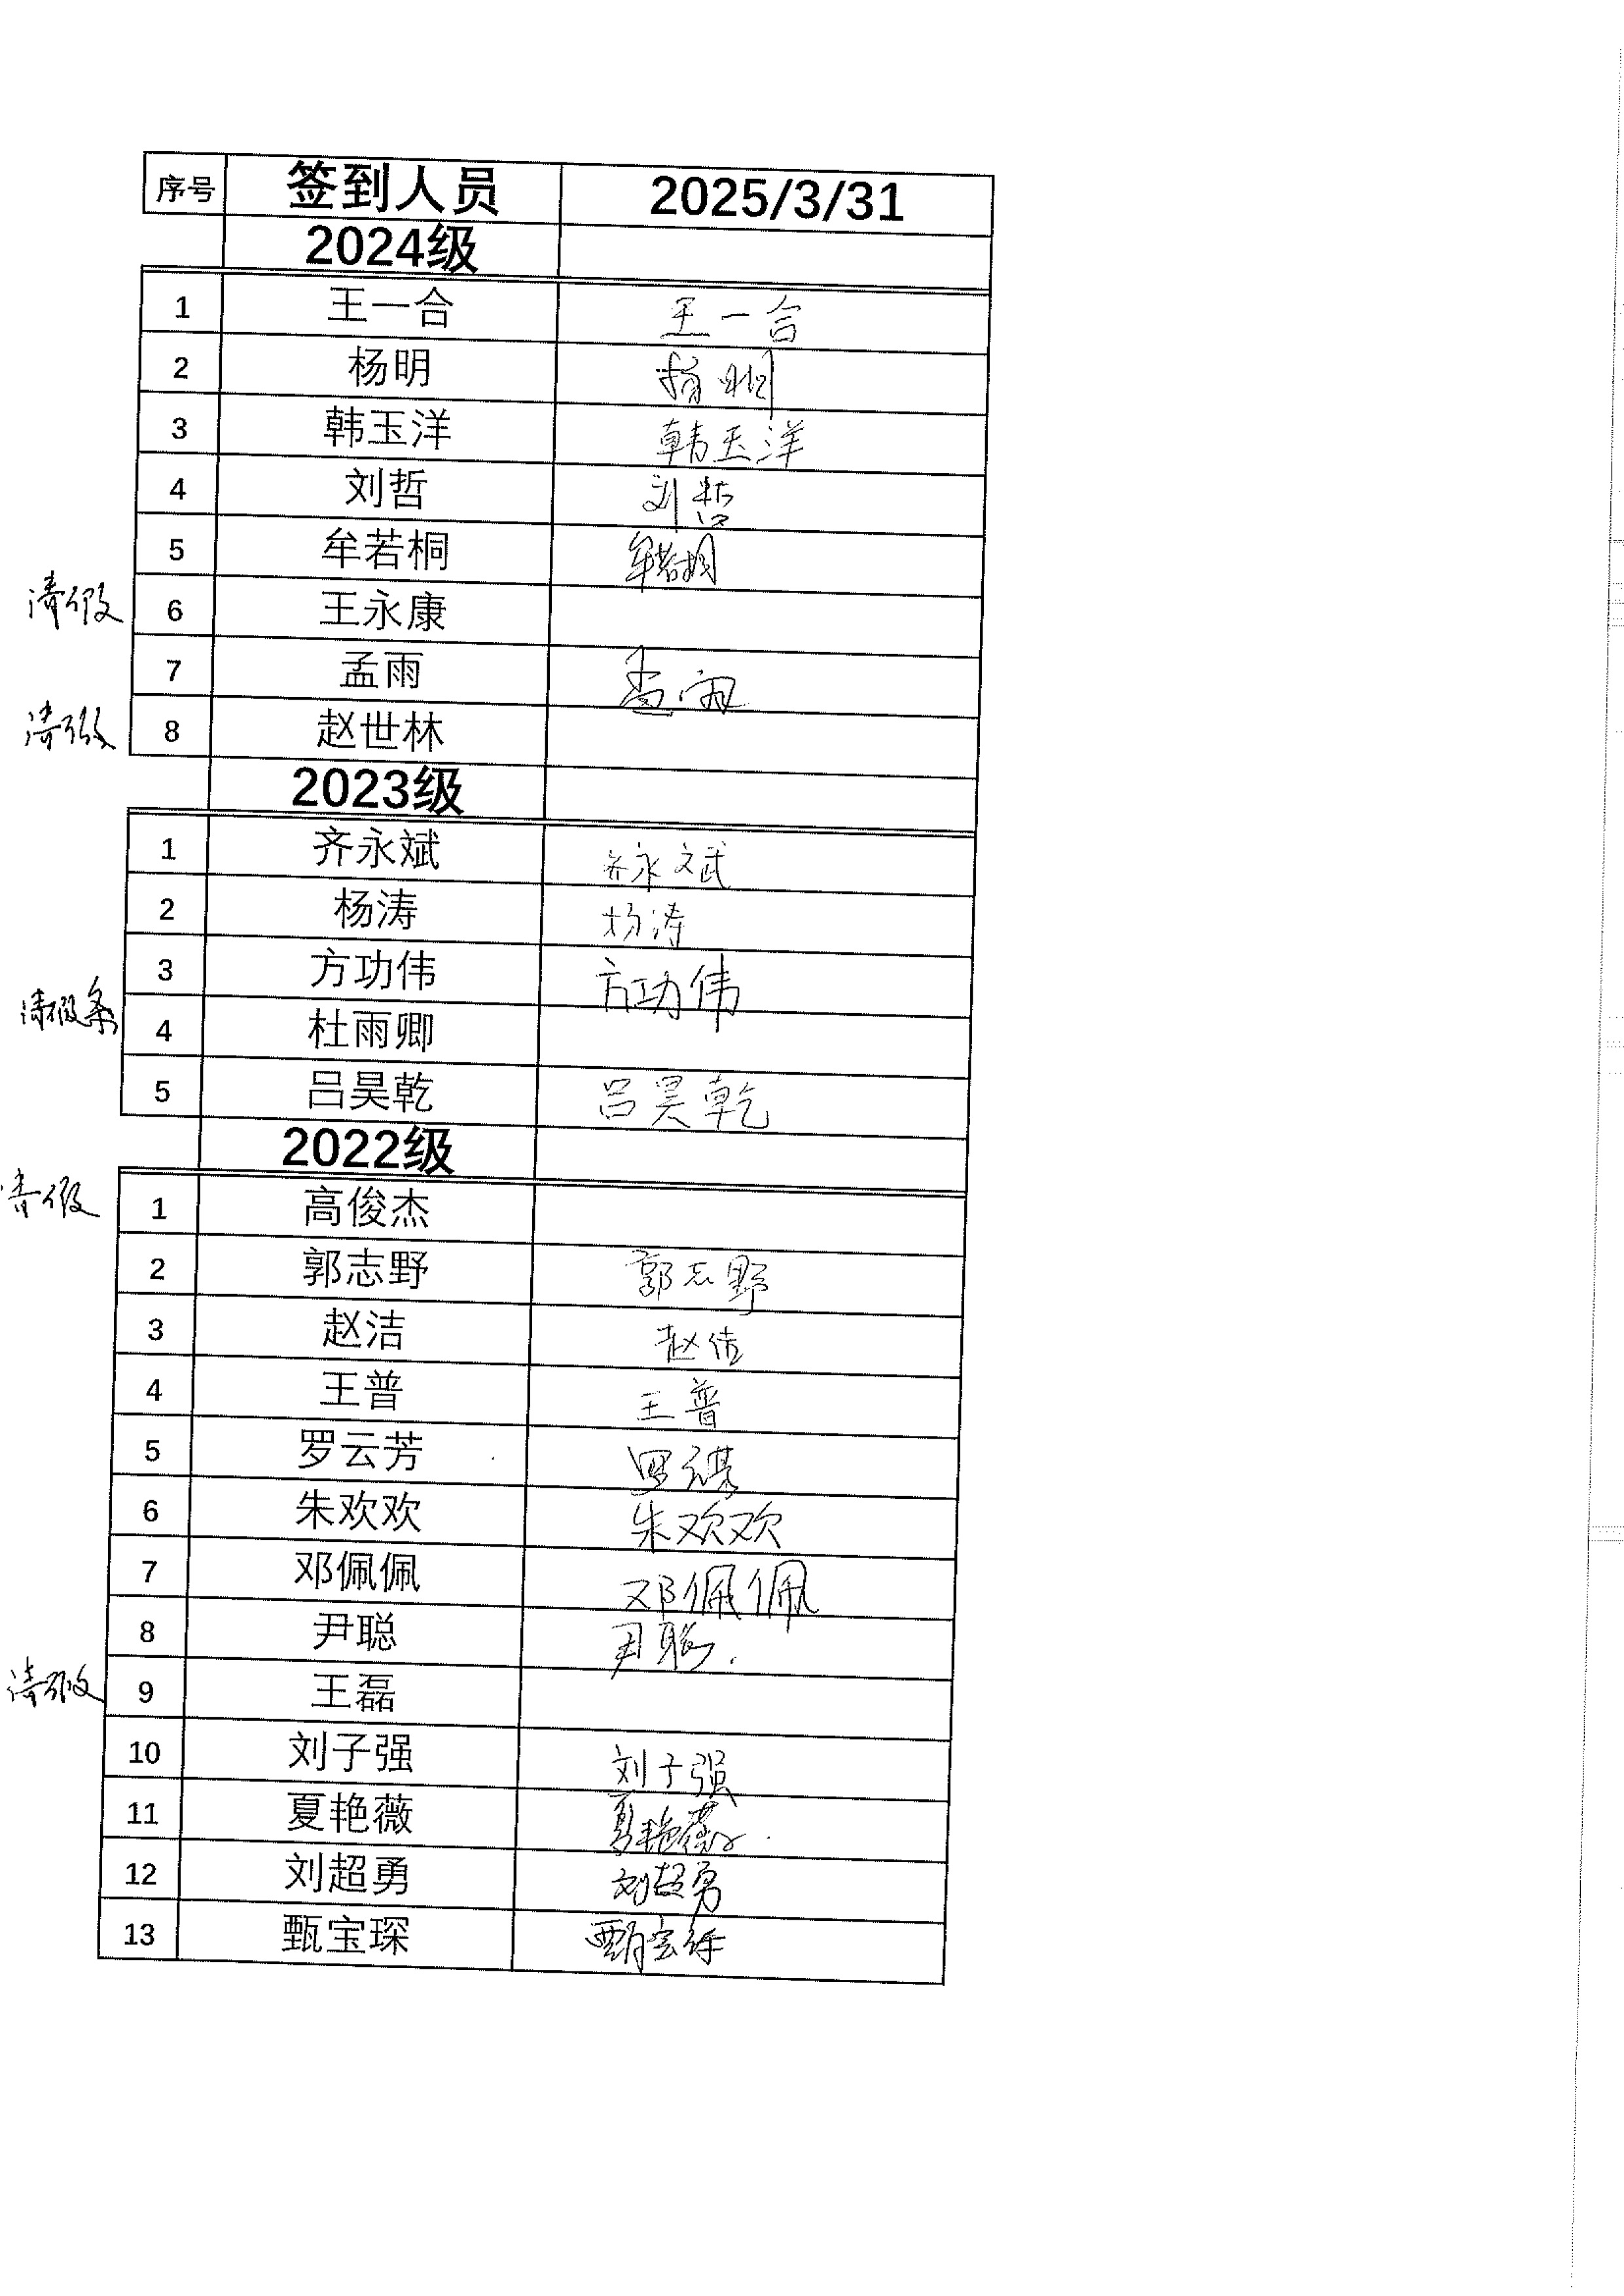 序号 签到人员 2025/3/31
2024级
1 王一合 王一合
2 杨明 杨明
3 韩玉洋 韩玉洋
4 刘哲 刘哲
5 牟若桐 牟若桐
请假 6 王永康
7 孟雨 孟雨
请假 8 赵世林
2023级
1 齐永斌 齐永斌
2 杨涛 杨涛
3 方功伟 方功伟
请假条 4 杜雨卿
5 吕昊乾 吕昊乾
2022级
请假 1 高俊杰
2 郭志野 郭志野
3 赵洁 赵洁
4 王普 王普
5 罗云芳 罗云芳
6 朱欢欢 朱欢欢
7 邓佩佩 邓佩佩
8 尹聪 尹聪.
请假 9 王磊
10 刘子强 刘子强
11 夏艳薇 夏艳薇
12 刘超勇 刘超勇
13 甄宝琛 甄宝琛